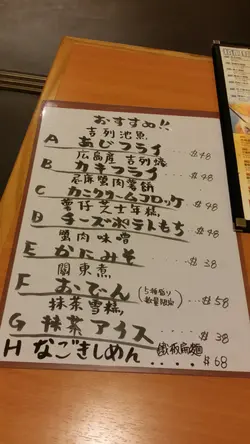 おすすめ!!
吉列池魚
A あじフライ・・・$48
広島産 吉列蠔
B カキフライ・・・$48
C カニクリームコロッケ・・$98
薯仔芝士年糕
D チーズポテトもち・・・$48
蟹肉味噌
E かにみそ・・・$38
關東煮
F おでん (5種盛り 数量限定)・・$58
抹茶雪糕
G 抹茶アイス・・・$38
H なごきしめん 鐵板烏麵
・・・・$68